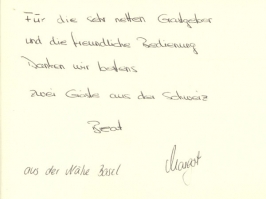 Für die sehr netten Gastgeber
und die freundliche Bedienung
Danken wir bestens
zwei Gäste aus der Schweiz
Beat
Margrit
aus der Nähe Basel